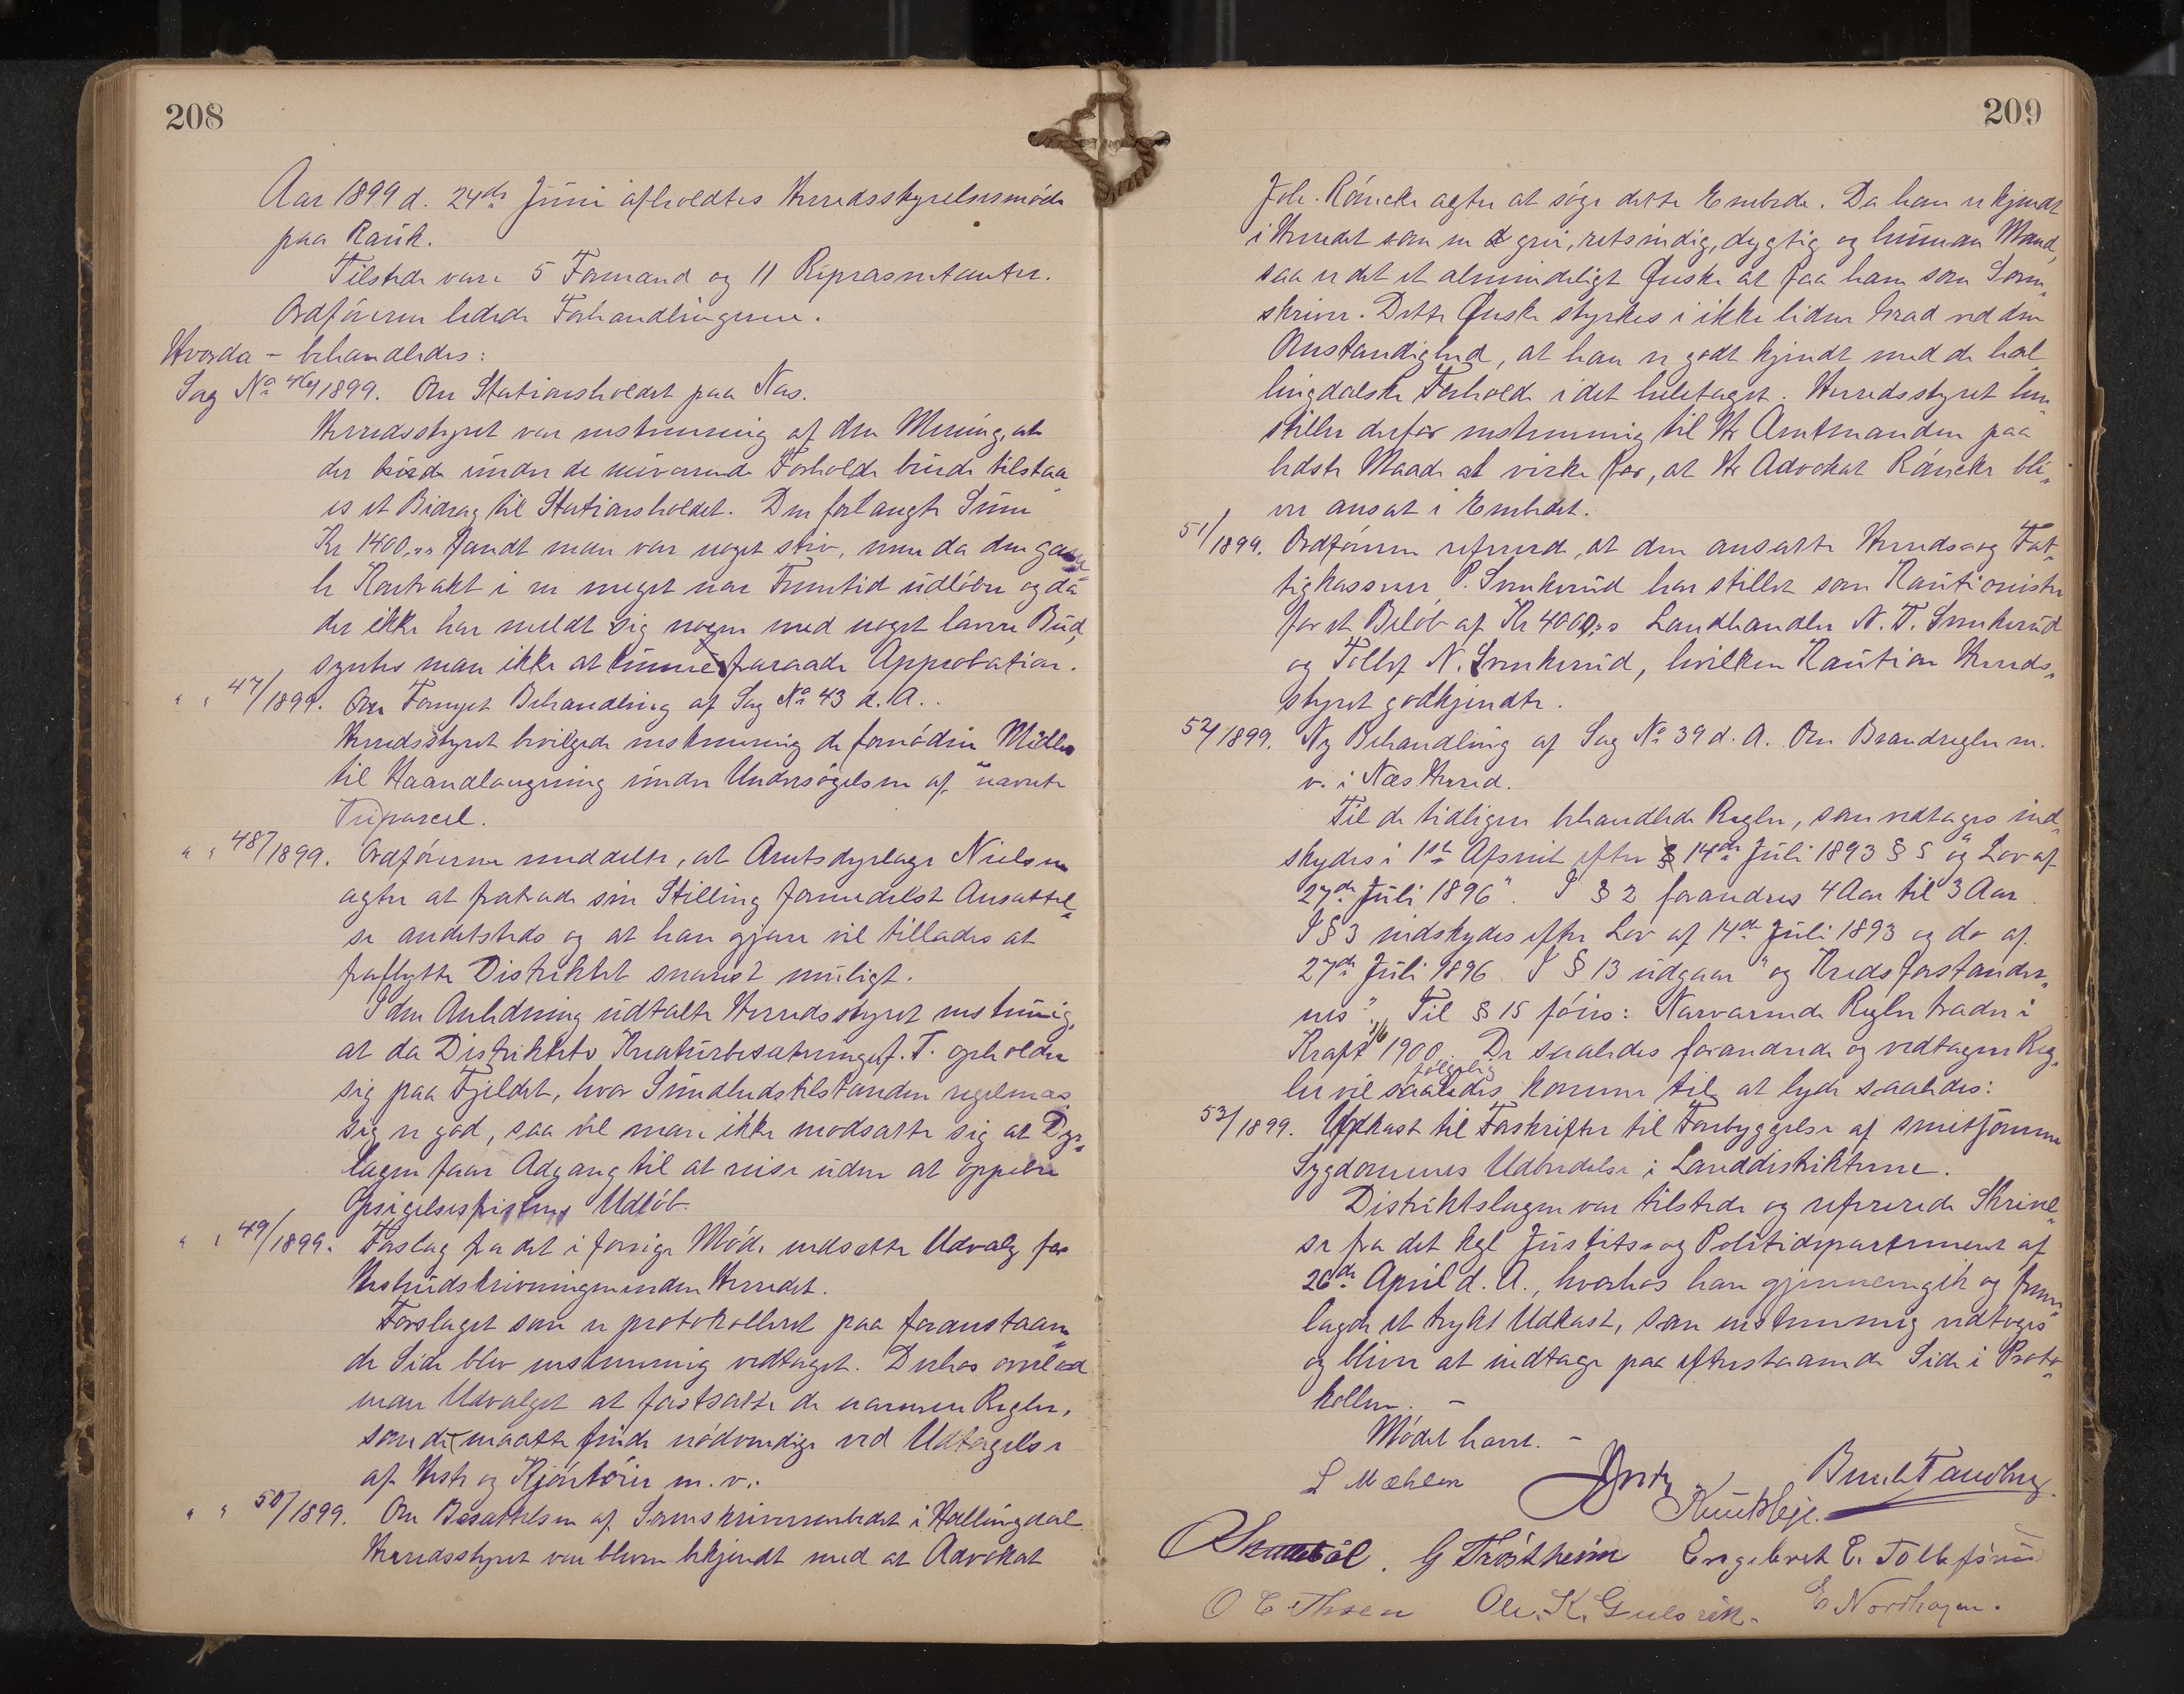 208
Aar 1899 d. 24de Juni afholdtes Herredsstyrelsesmöde
paa Rauk.
Tilstede vare 5 Formænd og 11 Repræsentanter.
Ordföreren ledede Forhandlingerne.
Hvorda - behandledes:
Sag No 46/1899. Om Stationsholdet paa Næs.
Herredsstyret var enstemmig af den Mening, at
der burde under de nuværende Forholde burde tilstaa„
es et Bidrag til Stationsholdet. Den forlangte Sum
Kr 1400,00 fandt man var noget stiv, men da den gam
le Kontrakt i en meget nær Fremtid udlöber og da
der ikke har meldt sig nogen med noget lavere Bud
syntes man ikke at kunne fraraade Approbation.
" " 47/1899. Om Fornyet Behandling af Sag No 43 d. A.
Herredsstyret bevilgede enstemmig de fornödne Midler
til Haandlangning under Undersögelsen af nævnte
Veiparcel.
" " 48/1899. Ordföreren meddelte, at Amtsdyrlæge Nielsen
agter at fratræde sin Stilling formedelst Ansættel„
se andetsteds og at han gjerne vil tillades at
fraflytte Distriktet snarest muligt.
I den Anledning udtalte Herredsstyret enstemmig,
at da Distriktets Kreaturbesætninger f. T. opholder
sig paa Fjeldet, hvor Sundhedstilstanden regelmæs
sig er god, saa vil man ikke modsætte sig at Dyr„
lægen faar Adgang til at reise uden at oppebie
Opsigelsesfristens Udlöb.
" " 49/1899. Forslag fra det i forrige Möde nedsatte Udvalg for
Hesteudskrivningen inden Herredet.
Forslaget som er protokolleret paa foranstaaen„
de Side blev enstemmig vedtaget. Derhos overlod
man Udvalget at fastsætte de nærmere Regler,
som det maatte finde nödvendige ved Udtagelse
af Heste og Kjöretöier m. v.
" " 50/1899. Om Besættelsen af Sorenskriverembedet i Hallingdal.
Herredsstyret var bleven bekjendt med at Advokat
209
Joh. Röncke agter at söge dette Embede. Da han er kjendt
i Herredet som en grei, retsindig, dygtig og human Mand,
saa er det et almindeligt Önske at faa ham som Soren„
skriver. Dette Önske styrkes i ikke liden Grad ved den
Omstændighed, at han er godt kjendt med de hal„
lingdalske Forholde i det heletaget. Herredsstyret hen„
stiller derfor enstemmig til Hr Amtmanden paa
bedste Maade at virke for, at Hr Advokat Röncke bli„
ver ansat i Embedet.
51/1899. Ordföreren refererede, at den ansatte Herreds- og Fat„
tigkasserer P. Smukerud har stillet som Kautionister
for et Belöb af Kr 4000,00 Landhandler N. T. Smukerud
og Tollef N. Smukerud, hvilken Kaution Herreds„
styret godkjendte.
52/1899. Ny Behandling af Sag No 39 d. A. Om Brandregler m.
v. i Næs Herred.
Til de tidligere behandlede Regler, som vedtages ind„
skydes i 1ste Afsnit efter § 14de Juli 1893 § 5 "og Lov af
27de Juli 1896". I § 2 forandres 4 Aar til 3 Aar.
I § 3 indskydes efter Lov af 14de Juli 1893 og do af
27de Juli 1896. I § 13 udgaar "og Kredsforstander„
nes". Til § 15 föies: Nærværende Regler træder i
Kraft 1/1 1900. De saaledes forandrede og vedtagne Reg„
ler vil saaledes fölgelig komme til at lyde saaledes:
53/1899. Udkast til Forskrifter til Forbyggelse af smitsomme
Sygdommes Udbredelse i Landdistrikterne.
Distriktslægen var tilstede og refererede Skrivel„
se fra det kgl Justits- og Politidepartement af
26de April d. A., hvorhos han gjennemgik og frem„
lagde et trykt Udkast, som enstemmig vedtoges
og bliver at indtage paa efterstaaende Side i Proto„
kollen. -
Mödet hævet. -
L Mæhlen Bernt Tandberg
Knut Heje.
G Tröstheim Engebret E. Tollefsrud
O E Thoen Ole. K. Gulsvik. E Nordhagen.